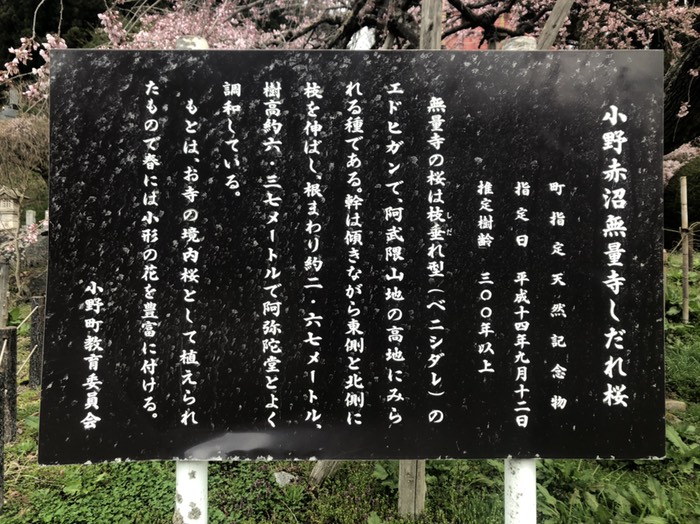 小野赤沼無量寺しだれ桜
町指定天然記念物
指定日 平成十四年九月十二日
推定樹齢 三〇〇年以上
無量寺の桜は枝垂れ型(ベニシダレ)の
しだ
エドヒガンで、阿武隈山地の高地にみら
れる種である。幹は傾きながら東側と北側に
枝を伸ばし、根まわり約二・六七メートル、
樹高約六・三七メートルで阿弥陀堂とよく
調和している。
もとは、お寺の境内桜として植えられ
たもので春には小形の花を豊富に付ける。
小野町教育委員会